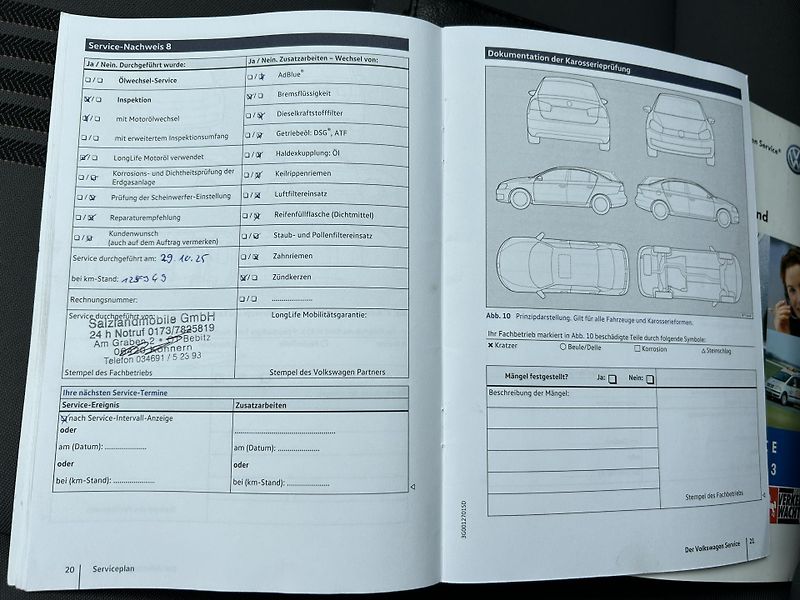 Service-Nachweis 8
Ja / Nein. Durchgeführt wurde:
Ölwechsel-Service
Inspektion
mit Motorölwechsel
mit erweitertem Inspektionsumfang
LongLife Motoröl verwendet
Korrosions- und Dichtheitsprüfung der
Erdgasanlage
Prüfung der Scheinwerfer-Einstellung
Reparaturempfehlung
Kundenwunsch
(auch auf dem Auftrag vermerken)
Service durchgeführt am: 29.10.25
bei km-Stand:
Rechnungsnummer:
Service durchgeführt von:
Salzlandmobile GmbH
24 h Notruf 0173/7825819
Am Graben 2 • OT Bebitz
06420 Könnern
Telefon 034691 / 5 23 93
Stempel des Fachbetriebs
Ja / Nein. Zusatzarbeiten – Wechsel von:
AdBlue®
Bremsflüssigkeit
Dieselkraftstofffilter
Getriebeöl: DSG®, ATF
Haldexkupplung: Öl
Keilrippenriemen
Luftfiltereinsatz
Reifenfüllflasche (Dichtmittel)
Staub- und Pollenfiltereinsatz
Zahnriemen
Zündkerzen
....................
LongLife Mobilitätsgarantie:
Stempel des Volkswagen Partners
Ihre nächsten Service-Termine
Service-Ereignis
nach Service-Intervall-Anzeige
oder
am (Datum): ....................
oder
bei (km-Stand): ....................
Zusatzarbeiten
am (Datum): ....................
oder
bei (km-Stand): ....................
20 Serviceplan
Dokumentation der Karosserieprüfung
Abb. 10 Prinzipdarstellung. Gilt für alle Fahrzeuge und Karosserieformen.
Ihr Fachbetrieb markiert in Abb. 10 beschädigte Teile durch folgende Symbole:
× Kratzer ○ Beule/Delle □ Korrosion △ Steinschlag
Mängel festgestellt? Ja: Nein:
Beschreibung der Mängel:
Stempel des Fachbetriebs
3G0012701SD
Der Volkswagen Service 21
Service®
nd
E
3